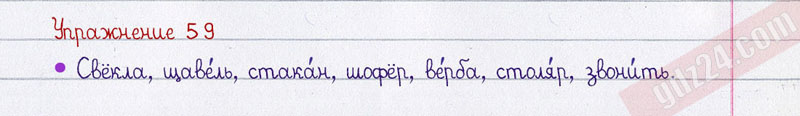 Упражнение 59
• Свёкла, щаве́ль, стака́н, шофёр, ве́рба, столя́р, звони́ть.
gdz24.com